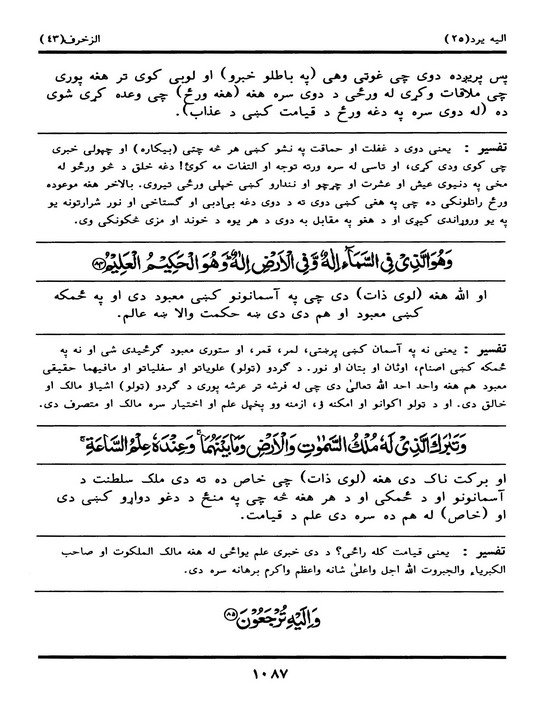 الیه یرد(۲۵)
الزخرف(۴۳)
پس پریږده دوی چی غوټی وهی (په باطلو خبرو) او لوبی کوی تر هغه پوری
چی ملاقات وکړی له ورځی د دوی سره هغه (هغه ورځ) چی وعده کړی شوی
ده (له دوی سره په دغه ورځ د قیامت کښی د عذاب).
تفسیر : یعنی دوی د غفلت او حماقت په نشو کښی هر څه چتی (بیکاره) او چهولی خبری
چی کوی ودی کړی، او تاسی له سره ورته توجه او التفات مه کوئ! دغه خلق د څو ورځو له
مخی په دنیوی عیش او عشرت او چرچو او نندارو کښی خپلی ورځی تیروی. بالاخر هغه موعوده
ورځ راتلونکی ده چی په هغی کښی دوی ته د دوی دغه بی‌ادبی او گستاخی او نور شرارتونه یو
په یو وروړاندی کیږی او د هغو په مقابل به دوی د هر یوه د خوند او مزی څکونکی وی.
وَهُوَ الَّذِیْ فِی السَّمَآءِ اِلٰهٌ وَّفِی الْاَرْضِ اِلٰهٌ ؕ وَهُوَ الْحَكِیْمُ الْعَلِیْمُ ﴿۸۴﴾
او الله هغه (لوی ذات) دی چی په آسمانونو کښی معبود دی او په ځمکه
کښی معبود او هم دی دی ښه حکمت والا ښه عالم.
تفسیر : یعنی نه په آسمان کښی پرښتی، لمر، قمر، او ستوری معبود گرځیدی شی او نه په
ځمکه کښی اصنام، اوثان او بتان او نور. د گردو (تولو) علویاتو او سفلیاتو او مافیهما حقیقی
معبود هم هغه واحد احد الله تعالیٰ دی چی له فرشه تر عرشه پوری د گردو (تولو) اشیاؤ مالک او
خالق دی. او د تولو اکوانو او امکنه ؤ، ازمنه وو پخپل علم او اختیار سره مالک او متصرف دی.
وَتَبٰرَكَ الَّذِیْ لَهٗ مُلْكُ السَّمٰوٰتِ وَالْاَرْضِ وَمَا بَیْنَهُمَا ۚ وَعِنْدَهٗ عِلْمُ السَّاعَةِ ۚ
او برکت ناک دی هغه (لوی ذات) چی خاص ده ته دی ملک سلطنت د
آسمانونو او د ځمکی او د هر هغه څه چی په منځ د دغو دواړو کښی دی
او (خاص) له هم ده سره دی علم د قیامت.
تفسیر : یعنی قیامت کله راځی؟ د دی خبری علم یواځی له هغه مالک الملکوت او صاحب
الکبریاء والجبروت الله اجل واعلیٰ شانه واعظم واکرم برهانه سره دی.
وَاِلَیْهِ تُرْجَعُوْنَ ﴿۸۵﴾
۱۰۸۷